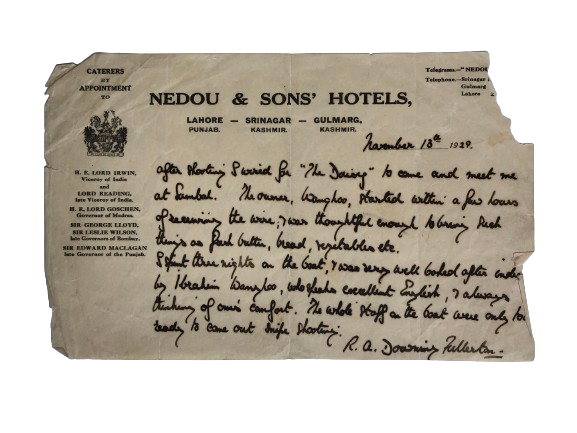 CATERERS
BY
APPOINTMENT
TO
H. E. LORD IRWIN,
Viceroy of India
and
LORD READING,
late Viceroy of India.
H. E. LORD GOSCHEN,
Governor of Madras.
SIR GEORGE LLOYD,
SIR LESLIE WILSON,
late Governors of Bombay.
SIR EDWARD MACLAGAN
late Governor of the Punjab.
Telegrams.—"NEDOU
Telephone.—Srinagar
Gulmarg
Lahore
NEDOU & SONS' HOTELS,
LAHORE — SRINAGAR — GULMARG,
PUNJAB. KASHMIR. KASHMIR.
November 13th 1929.
after shooting I wired for "The Daisy" to come and meet me
at Sumbal. The owner, Wangnoo, started within a few hours
of receiving the wire, & was thoughtful enough to bring such
things as fresh butter, bread, vegetables etc.
I spent three nights on the boat, & was very well looked after
by Ibrahim Wangnoo, who speaks excellent English, & always
thinking of one's comfort. The whole staff on the boat were only too
ready to come out snipe shooting.
R. A. Downing Fullerton.